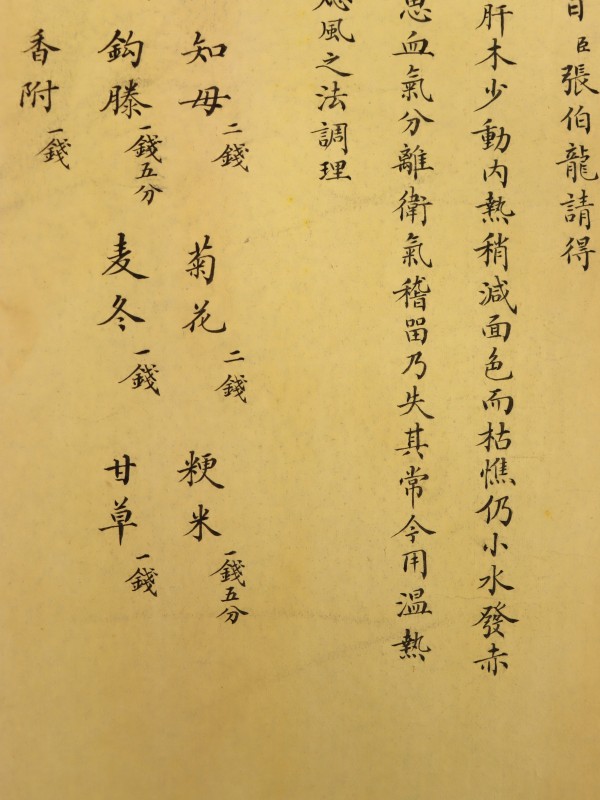 臣張伯龍請得
肝木少動內熱稍減面色而枯憔仍小水發赤
思血氣分離衛氣稽畱乃失其常今用溫熱
風之法調理
知母 二錢 菊花 二錢 粳米 一錢五分
鈎藤 一錢五分 麦冬 一錢 甘草 一錢
香附 一錢